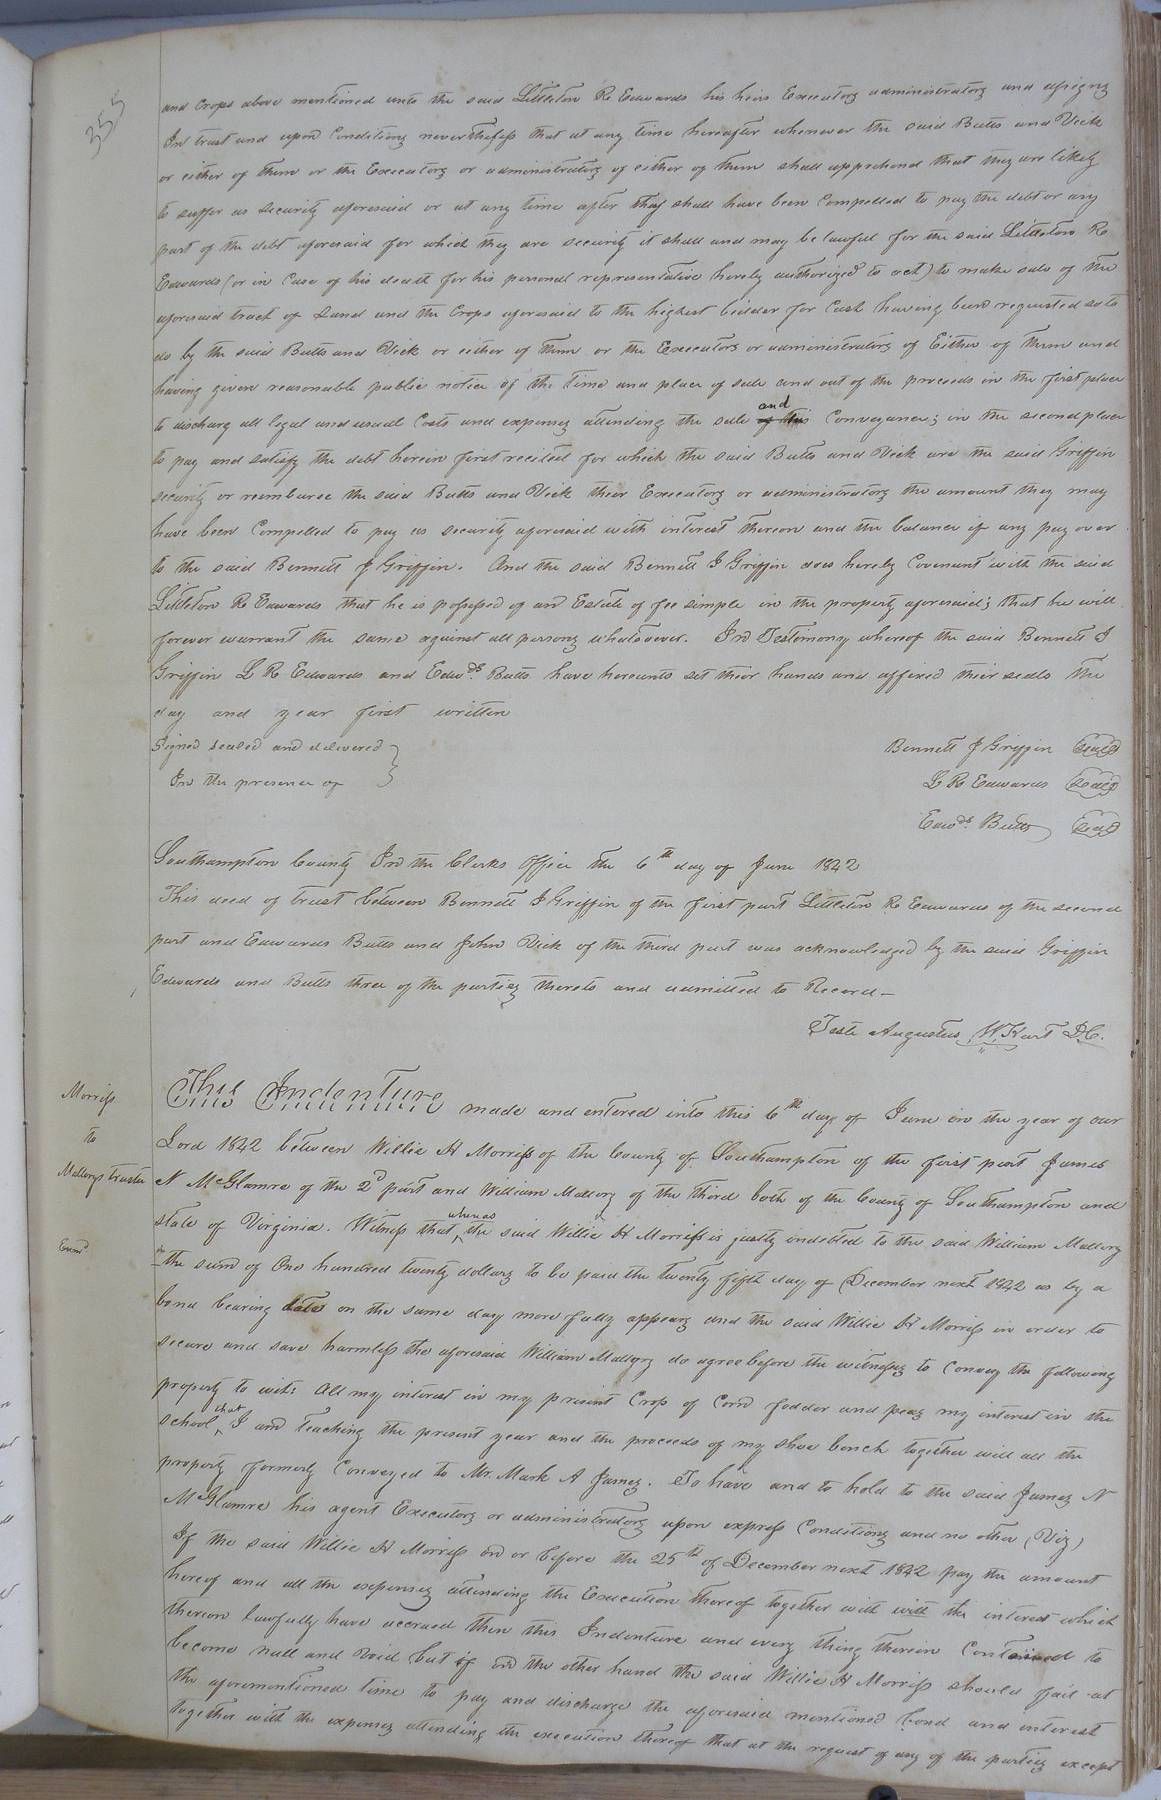 355
and crops above mentioned unto the said Littleton R Edwards his heirs Executors administrators and assigns
In trust and upon Conditions nevertheless that at any time hereafter whenever the said Butts and Vick
or either of them or the Executors or administrators of either of them shall apprehend that they are likely
to suffer as security aforesaid or at any time after they shall have been Compelled to pay the debt or any
part of the debt aforesaid for which they are security it shall and may be lawful for the said Littleton R
Edwards (or in Case of his death for his personal representative hereby authorized to act) to make sale of the
aforesaid tract of Land and the Crops aforesaid to the highest bidder for Cash having been requested so to
do by the said Butts and Vick or either of them or the Executors or administrators of Either of them and
having given reasonable public notice of the time and place of sale and out of the proceeds in the first place
to discharg all legal and usual Costs and expenses attending the sale and this Conveyance; in the second place
to pay and satisfy the debt herein first recited for which the said Butts and Vick are the said Griffin
security or reimburse the said Butts and Vick their Executors or administrators the amount they may
have been Compelled to pay as security aforesaid with interest thereon and the balance if any pay over
to the said Bennett J Griffin. And the said Bennett J Griffin does hereby Covenant with the said
Littleton R Edwards that he is possessed of an Estate of fee simple in the property aforesaid; that he will
forever warrant the same against all persons whatsoever. In Testimony whereof the said Bennett J
Griffin L R Edwards and Edwds. Butts have hereunto set their hands and affixed their seals the
day and year first written
Signed sealed and delivered }
In the presence of }
Bennett J Griffin (Seal)
L R Edwards (Seal)
Edwds. Butts (Seal)
Southampton County In the Clerks Office the 6th day of June 1842
This deed of trust between Bennett J Griffin of the first part Littleton R Edwards of the second
part and Edwards Butts and John Vick of the third part was acknowledged by the said Griffin
Edwards and Butts three of the parties thereto and admitted to Record—
Teste Augustus W. Hart D.C.
Morriss
to
Mallorys trustee
Examd
This Indenture made and entered into this 6th day of June in the year of our
Lord 1842 between Willie H Morriss of the County of Southampton of the first part James
N McGlamre of the 2d part and William Mallory of the third both of the County of Southampton and
state of Virginia. Witness that whereas the said Willie H Morriss is justly indebted to the said William Mallory
in the sum of One hundred twenty dollars to be paid the twenty fifth day of December next 1842 as by a
bond bearing date on the same day more fully appears and the said Willie H Morriss in order to
secure and save harmless the aforesaid William Mallory do agree before the witnesses to convey the following
property to wit: All my interest in my present Crop of Corn fodder and peas my interest in the
school that I am teaching the present year and the proceeds of my shoe bench together will all the
property formerly Conveyed to Mr. Mark A James. To have and to hold to the said James N
McGlamre his agent Executors or administrators upon express Conditions and no other (Viz)
If the said Willie H Morriss on or before the 25th of December next 1842 pay the amount
hereof and all the expenses attending the Execution thereof together with with the interest which
thereon lawfully have accrued then this Indenture and every thing therein Contained to
become null and void but if on the other hand the said Willie H Morriss should fail at
the aforementioned time to pay and discharge the aforesaid mentioned bond and interest
together with the expenses attending the execution thereof that at the request of any of the parties except